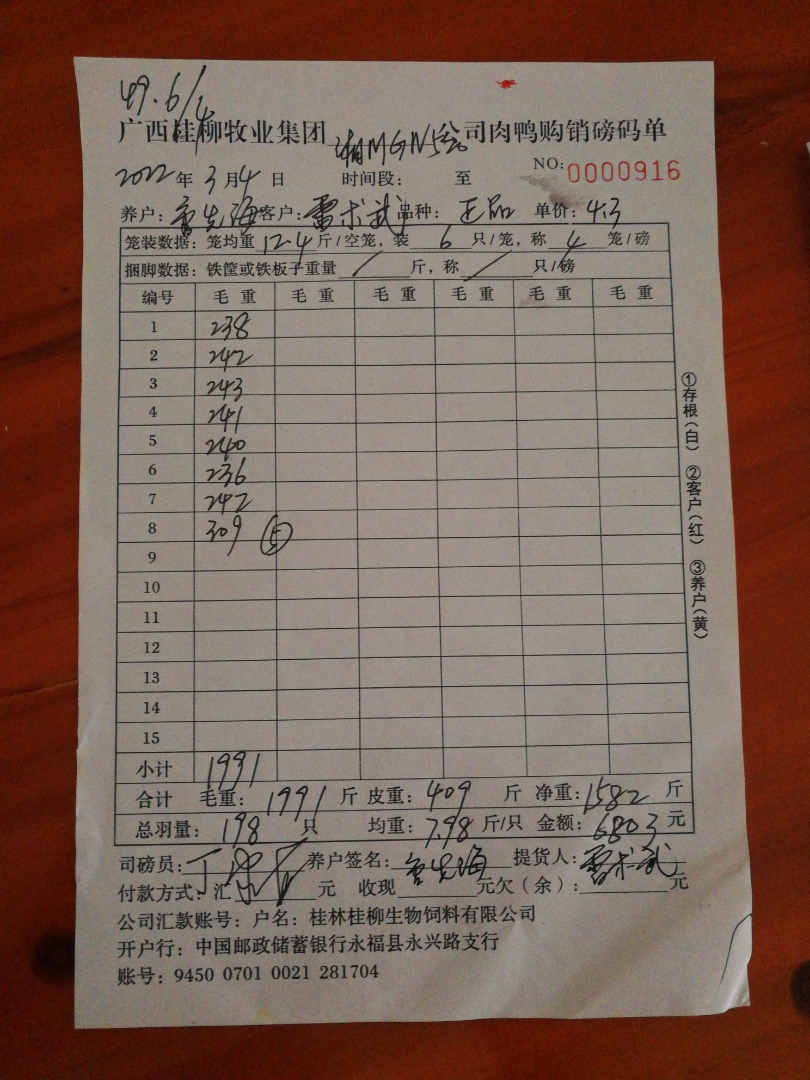 49.6/4
广西桂柳牧业集团 湘MGN520 公司肉鸭购销磅码单
2022年3月4日 时间段: 至 NO:0000916
养户: 客户:雷术武 品种:正品 单价:4.3
笼装数据:笼均重12.4斤/空笼,装6只/笼,称4笼/磅
捆脚数据:铁筐或铁板子重量/斤,称/只/磅
编号 毛重 毛重 毛重 毛重 毛重 毛重
1 238
2 242
3 243
4 241
5 240
6 236
7 242
8 309 ⑤
9
10
11
12
13
14
15
小计 1991
合计 毛重:1991斤 皮重:409斤 净重:1582斤
总羽量:198只 均重:7.98斤/只 金额:6803元
司磅员: 养户签名: 提货人:雷术武
付款方式:汇 元 收现 元欠(余): 元
公司汇款账号:户名:桂林桂柳生物饲料有限公司
开户行:中国邮政储蓄银行永福县永兴路支行
账号:9450 0701 0021 281704
①存根(白) ②客户(红) ③养户(黄)